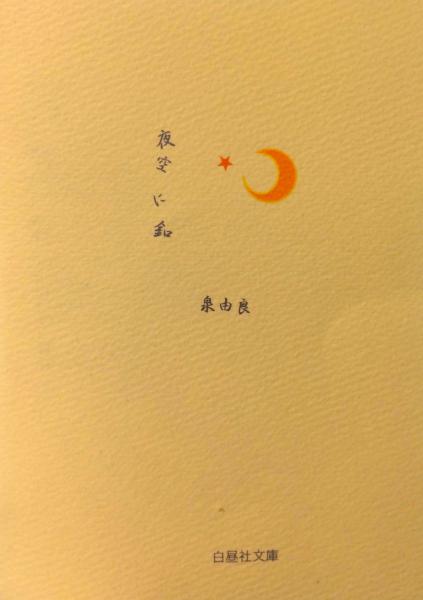 夜空に釦
泉由良
白昼社文庫